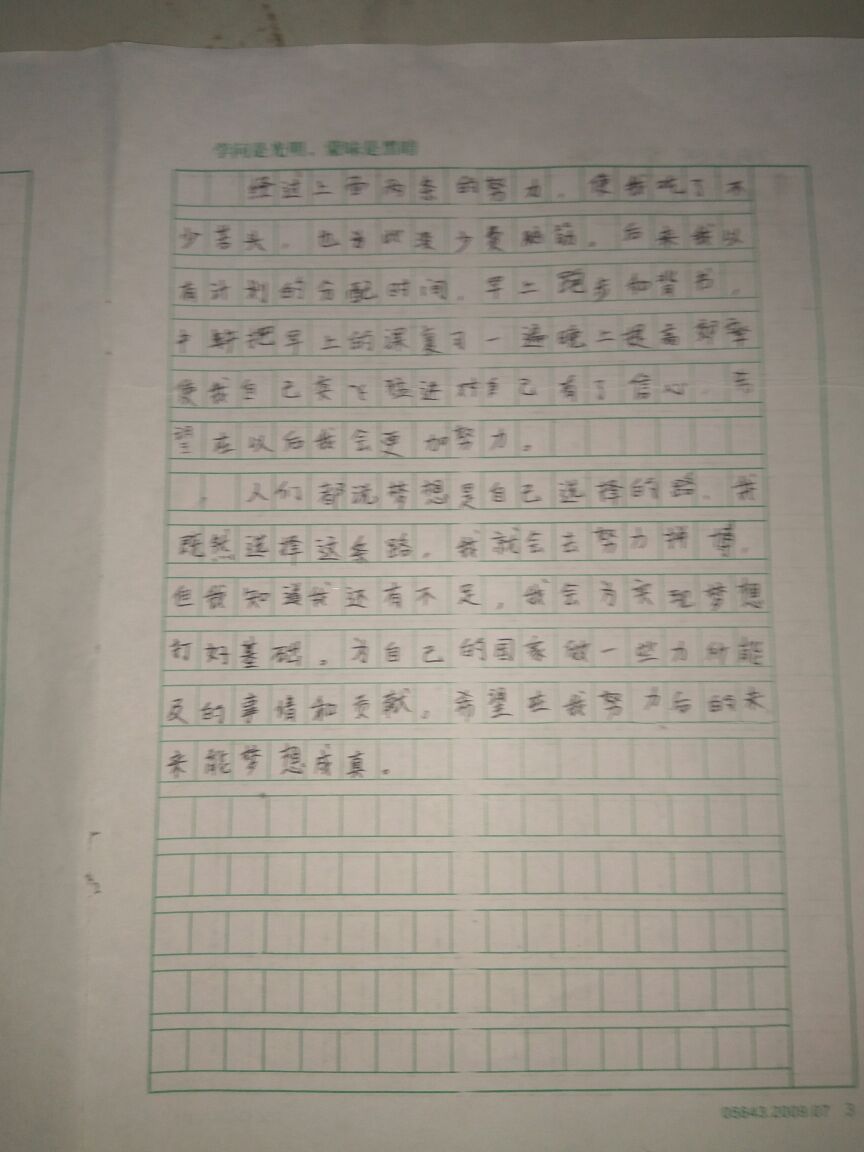 学问是光明，蒙昧是黑暗
经过上面两条的努力，使我吃了不
少苦头，也为此费少费脑筋。后来我以
有计划的分配时间，早上跑步和背书，
中午把早上的课复习一遍晚上提高效率
使我自己突飞猛进对自己有了信心，希
望在以后我会更加努力。
人们都说梦想是自己选择的路，我
既然选择这条路，我就会去努力拼博，
但我知道我还有不足，我会为实现梦想
打好基础。为自己的国家做一些力所能
及的事情和贡献。希望在我努力后的未
来能梦想成真。
05643.2009.07 3